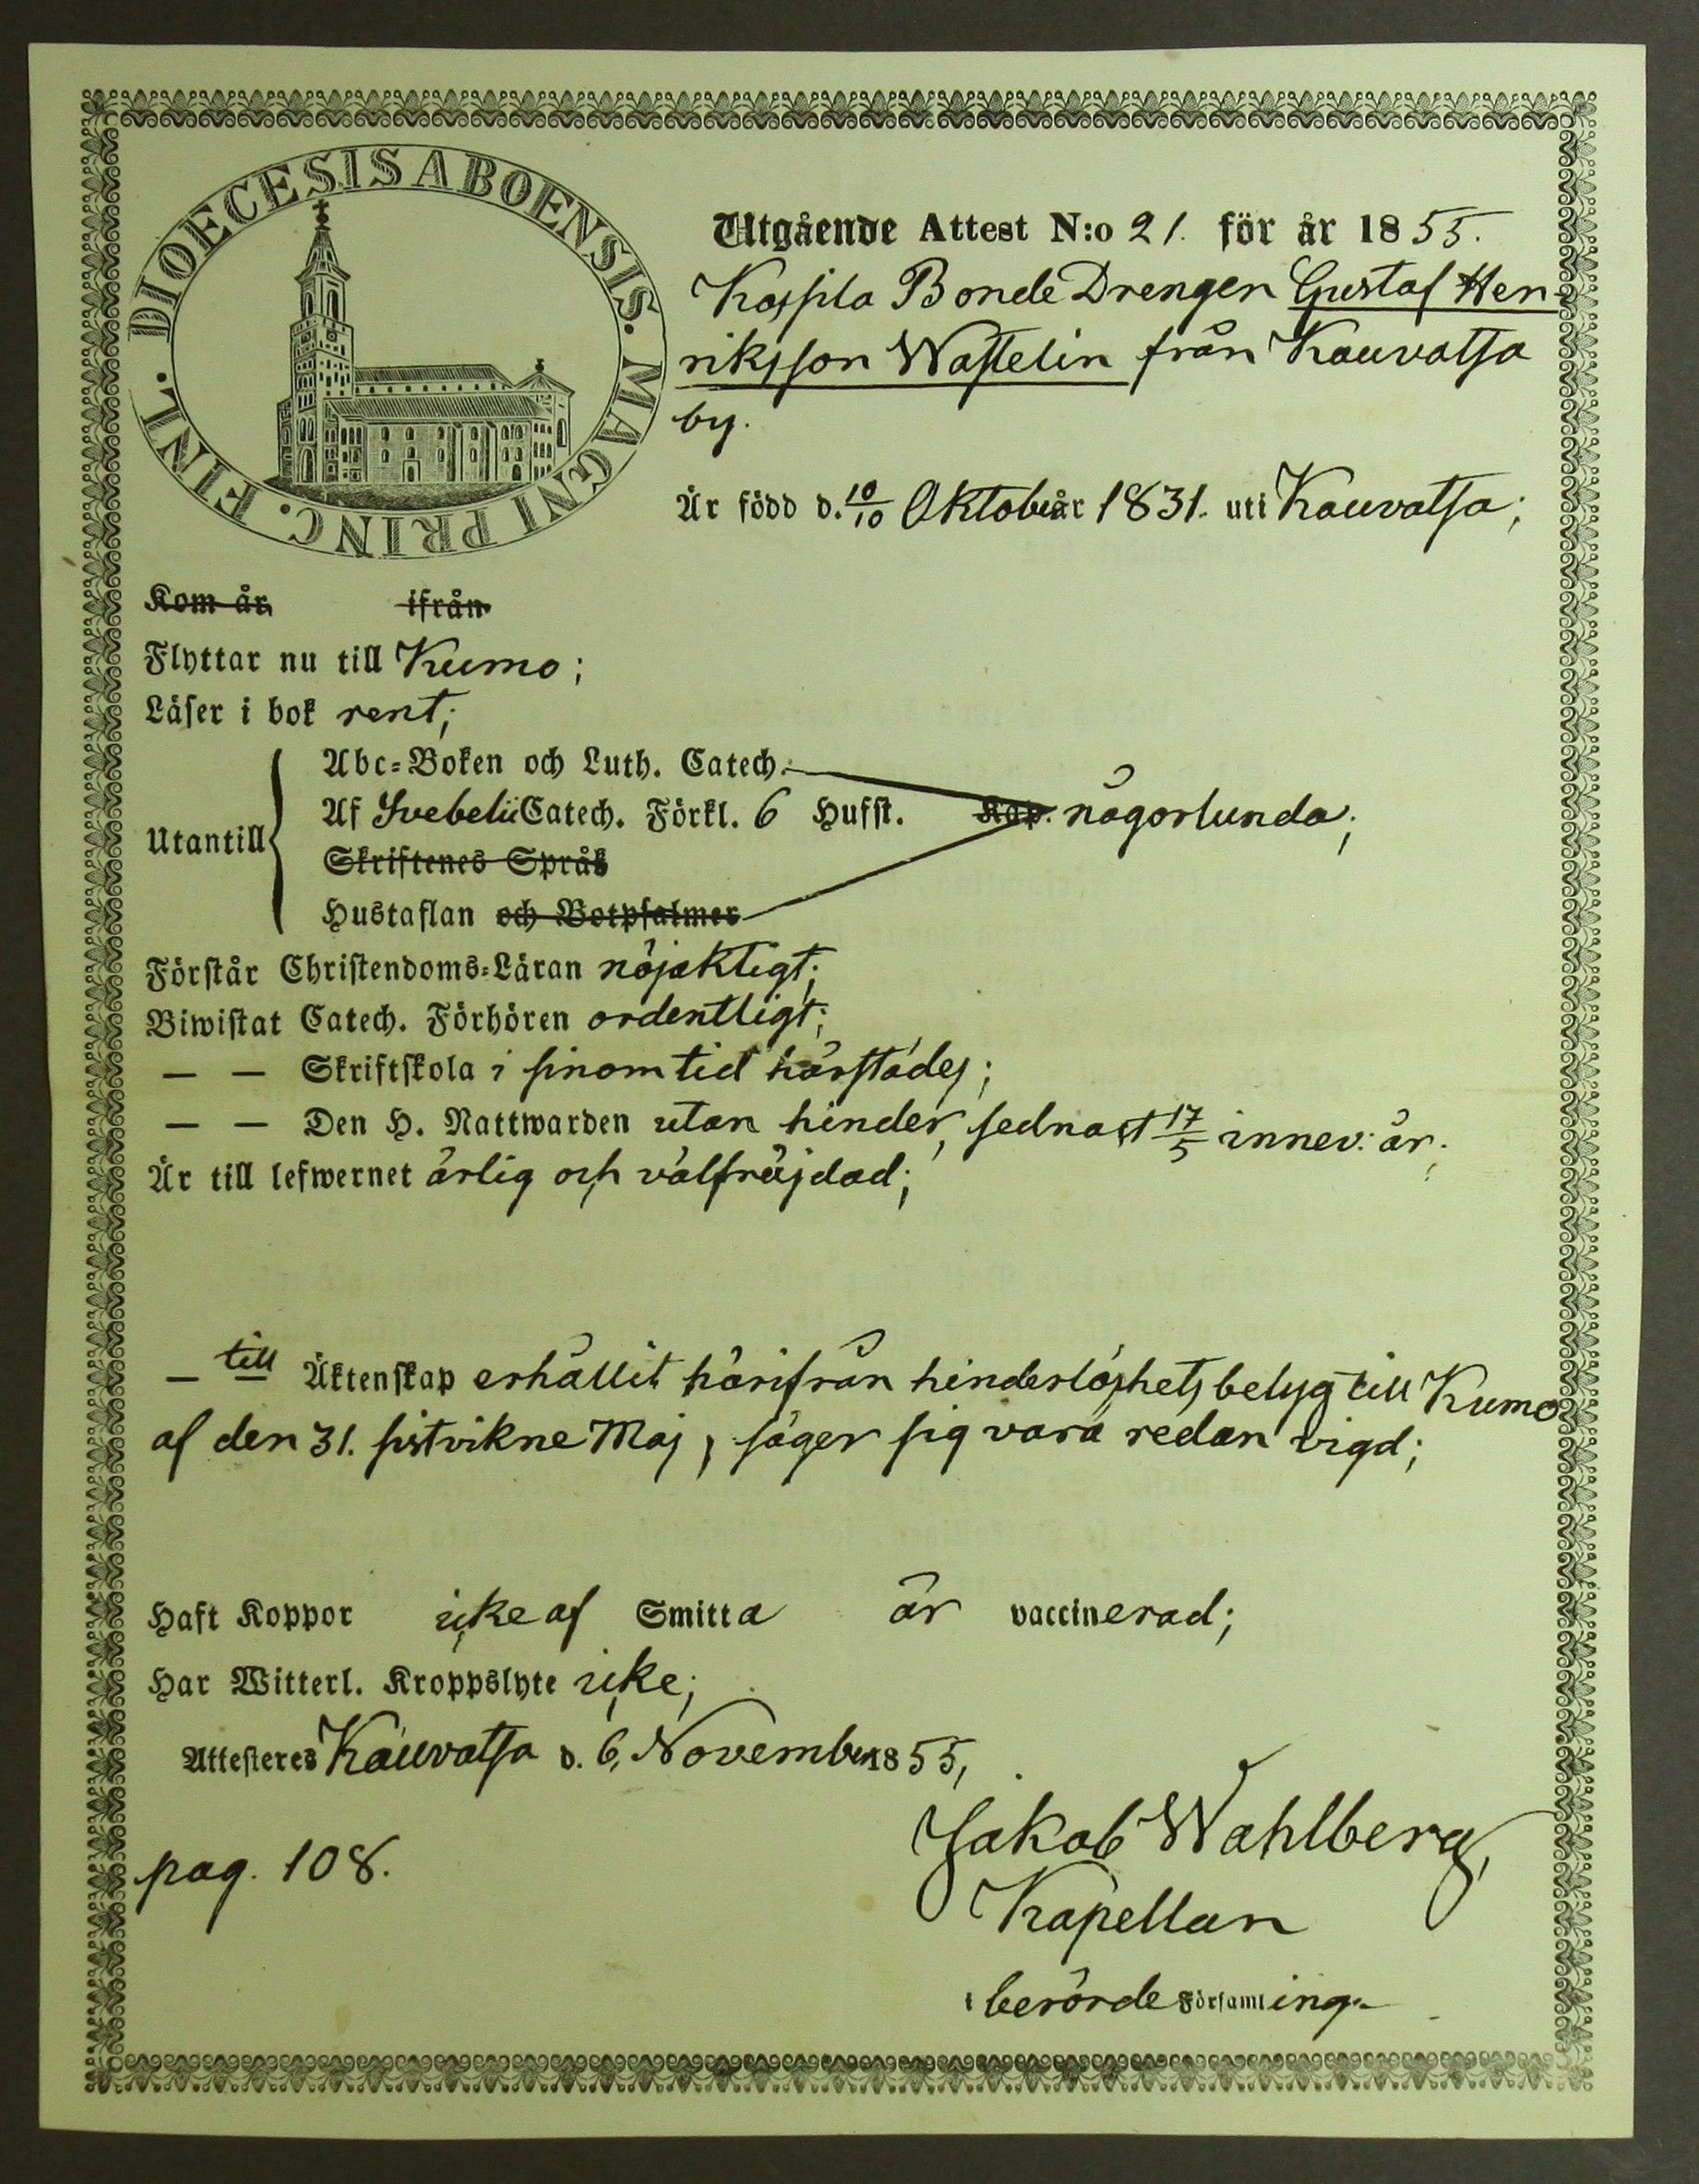 DIOECESIS ABOENSIS. MAGNI PRINC. FINL.
Utgående Attest N:o 21. för år 1855.
Kaspila Bonde Drengen Gustaf Hen-
riksson Wastelin från Kauvatsa
by.
Är född d. 10/10 Oktober år 1831. uti Kauvatsa;
Kom år ifrån
Flyttar nu till Kumo;
Läser i bok rent;
Utantill
Abc-Boken och Luth. Catech.
Af Svebelii Catech. Förkl. 6 Hufst. Kap. någorlunda;
Skriftenes Språk
Hustaflan och Botpsalmer
Förstår Christendoms-Läran nöjaktigt;
Biwistat Catech. Förhören ordentligt;
— — Skriftskola i sinom tid härstädes;
— — Den H. Nattwarden utan hinder, sednast 17/5 innev: år;
Är till lefwernet ärlig och välfräjdad;
— till Äktenskap erhållit härifrån hinderlöshets belyg till Kumo
af den 31. sistvikne Maj, säger sig vara redan vigd;
Haft Koppor icke af Smitta är vaccinerad;
Har Witterl. Kroppslyte icke;
Attesteres Kauvatsa d. 6, November 1855,
Jakob Wahlberg,
pag. 108.
Kapellan
i berörde Församling.